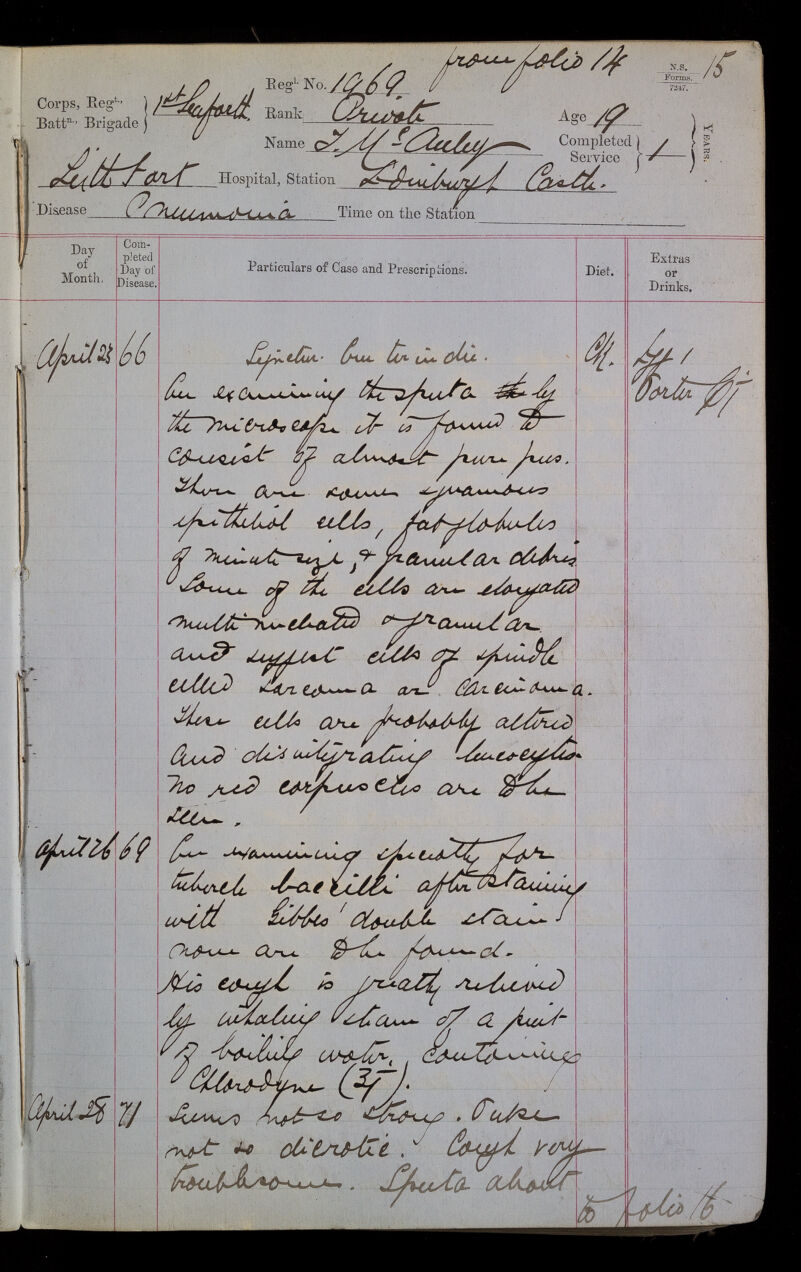 from folio 14
N.S.
Forms.
7247.
15
Regt. No. 1969
Corps, Regt.,
Battn., Brigade } 1st Seaforth
Rank Private
Age 19
Name J. McAuley
Completed
Service } 1
YEARS.
Leith Fort Hospital, Station Edinburgh Castle.
Disease Pneumonia Time on the Station
Day
of
Month.
Com-
pleted
Day of
Disease.
Particulars of Case and Prescriptions.
Diet.
Extras
or
Drinks.
April 23 66 ter in die. Ch. Egg 1
On examining the sputa the by Porter
the microscope it is found to
consist of almost pure pus.
There are some squamous
epithelial cells, fat globules
of minute size, & granular debris
Some of the cells are elongated
multinucleated & granular
and suggest cells of spindle
celled sarcoma or carcinoma.
These cells are probably altered
and disintigrating leucocytes
No red corpuscles are to be
seen.
April 26 69 On examining specially for
tubercle baccilli after staining
with Gibbes' double stain
none are to be found.
His cough is greatly relieved
by inhaling steam of a pint
of boiling water, containing
Chlorodyne (ʒi).
April 28 71 Seems not so strong. Pulse
not so dicrotic. Cough very
troublesome. Sputa about
to folio 16